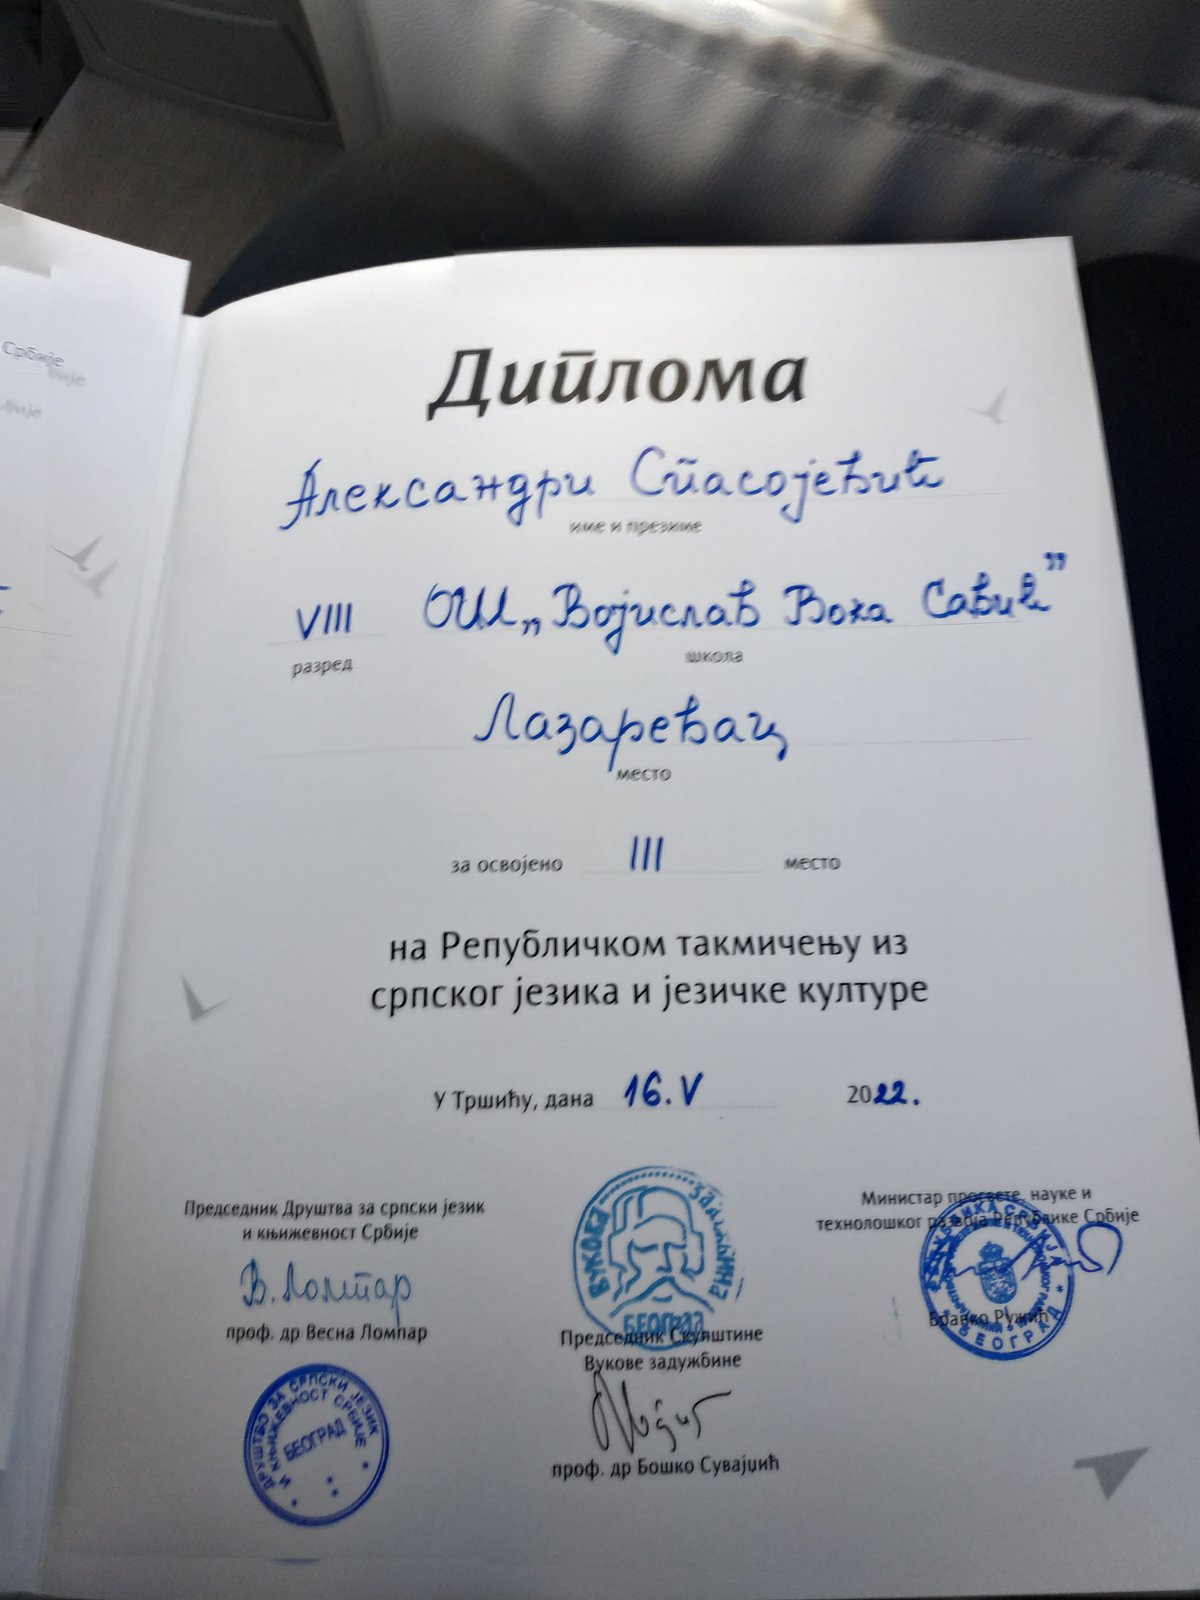 Србије
Диплома
Александри Спасојевић
име и презиме
VIII ОШ „Војислав Вока Савић”
разред школа
Лазаревац
место
за освојено III место
на Републичком такмичењу из
српског језика и језичке културе
У Тршићу, дана 16. V 2022.
Председник Друштва за српски језик
и књижевност Србије
В. Ломпар
проф. др Весна Ломпар
ДРУШТВО ЗА СРПСКИ ЈЕЗИК
И КЊИЖЕВНОСТ СРБИЈЕ
БЕОГРАД
ВУКОВА ЗАДУЖБИНА
БЕОГРАД
Председник Скупштине
Вукове задужбине
проф. др Бошко Сувајџић
Министар просвете, науке и
технолошког развоја Републике Србије
РЕПУБЛИКА СРБИЈА
БЕОГРАД
Бранко Ружић